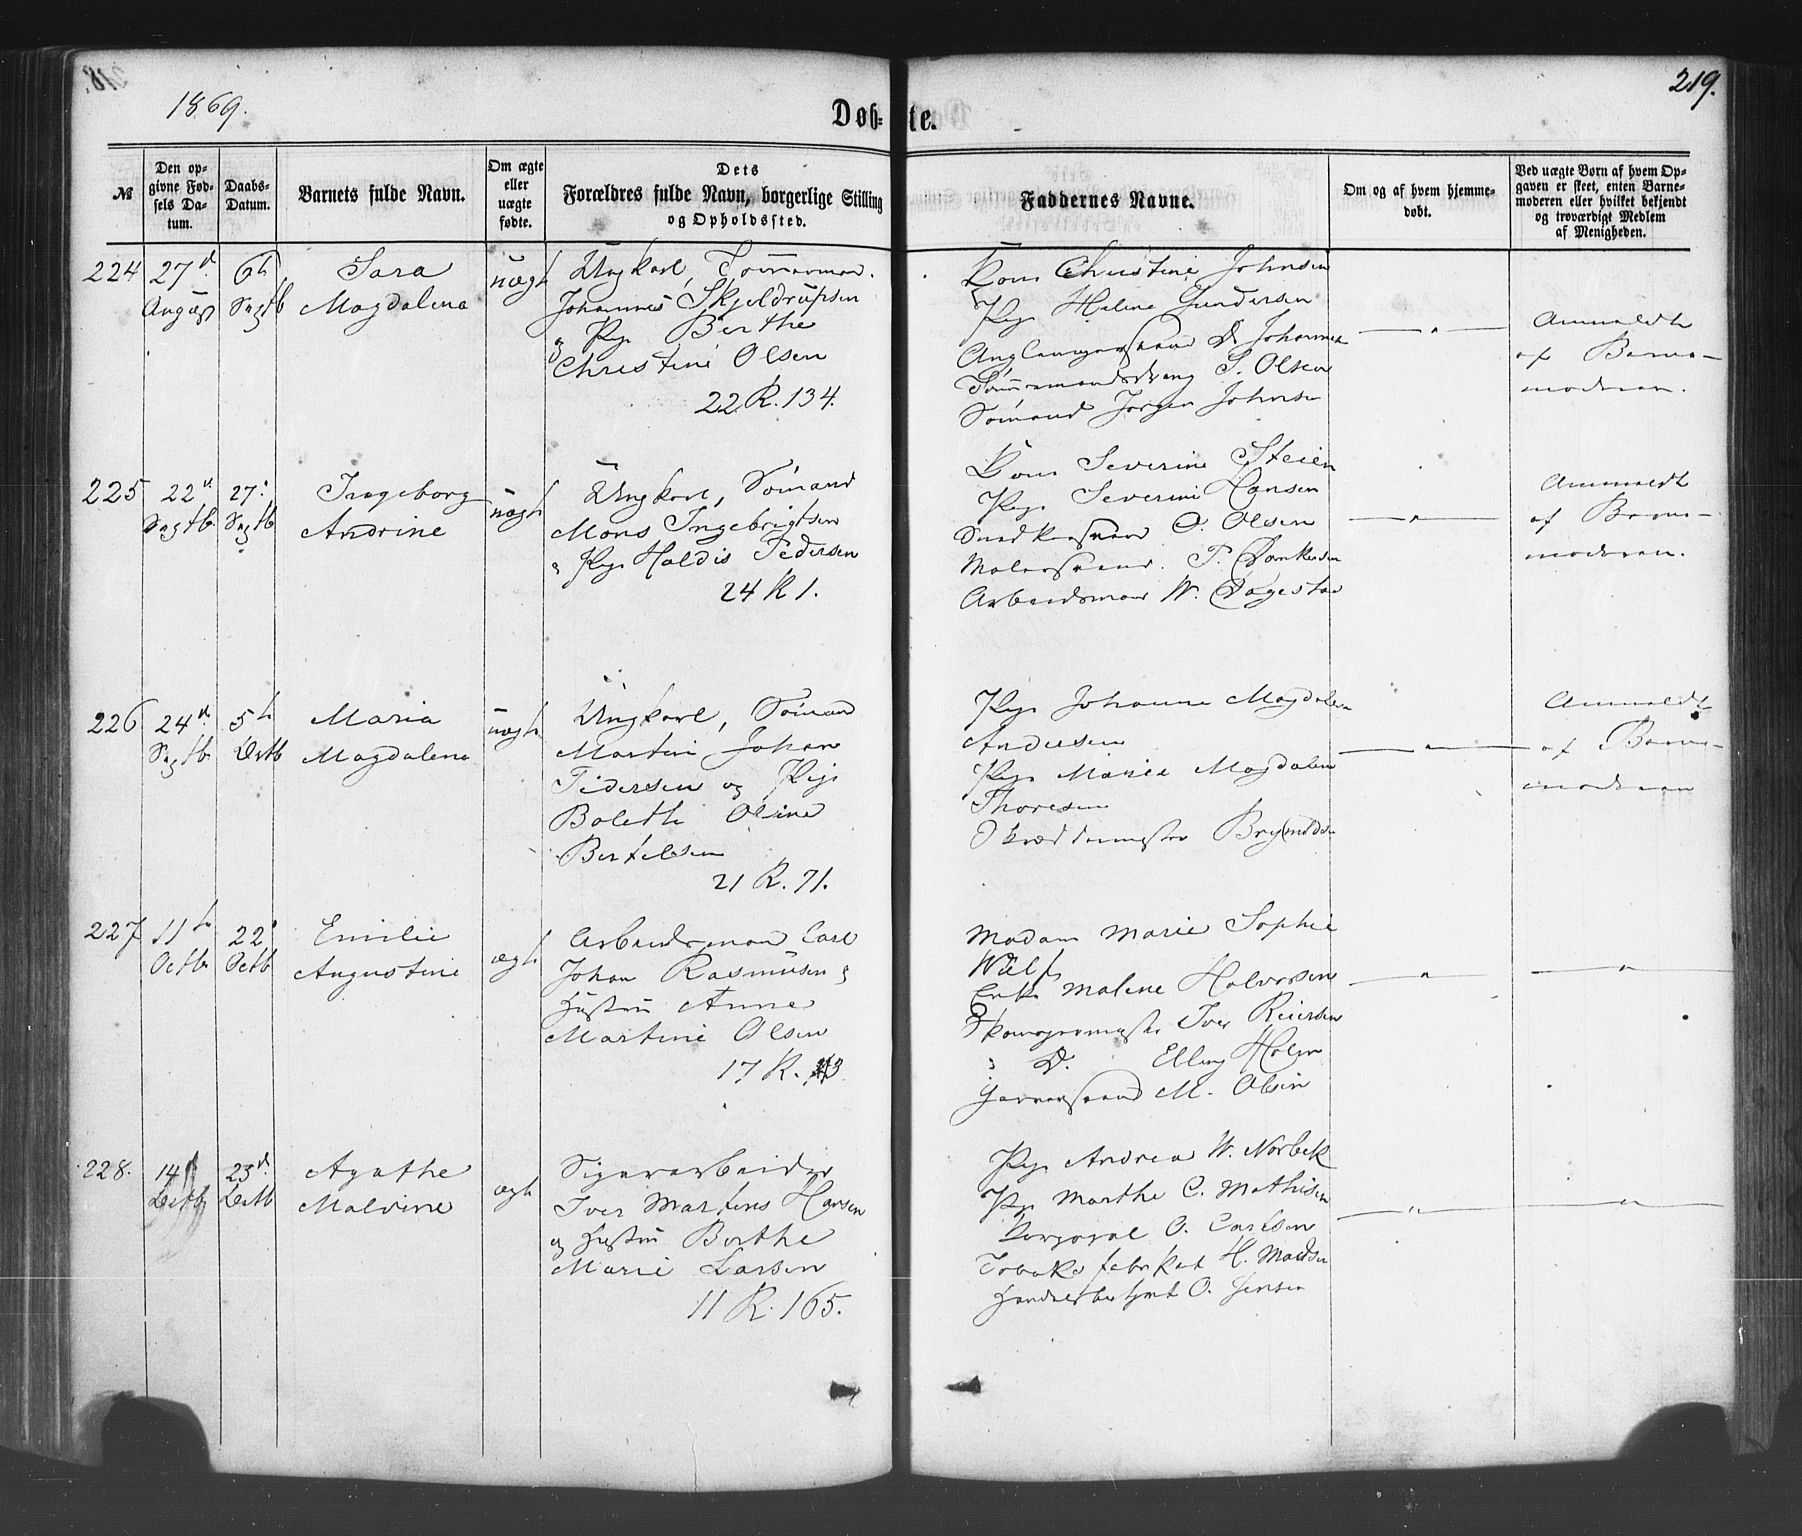 1869.
Døb-
te.
219.
№
Den op-
givne Fød-
sels Da-
tum.
Daabs-
Datum.
Barnets fulde Navn.
Om ægte
eller
uægte
fødte.
Dets
Forældres fulde Navn, borgerlige Stilling
og Opholdssted.
Faddernes Navne.
Om og af hvem hjemme-
døbt.
Ved uægte Børn af hvem Op-
gaven er skeet, enten Barne-
moderen eller hvilket bekjendt
og troværdigt Medlem
af Menigheden.
224
27d
August
6t
Septb
Sara
Magdalena
uægt
Ungkarl, Tømmermand
Johannes Skjeldrupsen
og Pige Berthe
Christine Olsen
22. R. 134.
Kone Christine Johnsen
Pige Helene Gundersen
D Johannes
S. Olsen
Sømand Jørgen Johnsen
Anmeldt
af Barne-
moderen.
225
22d
Septb
27:
Septb
Ingeborg
Andrine
uægt
Ungkarl, Sømand
Mons Ingebrigtsen
& Pige Haldis Pedersen
24 R 1.
Kone Severine Steien
Pige Severine Hansen
O. Olsen
Malersvend P.
Arbeidsmand W.
Anmeldt
af Barne-
moderen.
226
24d
Septb
5t
Octb
Maria
Magdalena
uægt
Ungkarl, Sømand
Martin Johan
Pedersen og Pige
Bolethe Olsine
Bertelsen
21 R. 71.
Pige Johanne Magdalene
Andersen
Pige Marie Magdalene
Thoresen
Skræddermester
Anmeldt
af Barne-
moderen
227
11t
Octb
22d
Octb
Emilie
Augustine
ægt
Arbeidsmand Carl
Johan Rasmusen &
Hustru Anne
Martine Olsen
17 R.
Madam Marie Sophie
Wulf
Enke Malene Halvorsen
Skomagermester Iver Reiersen
D. Elling Holm
Garversvend M. Olsen
228.
14
Octb
23d
Octb
Agathe
Malvine
ægt
Sigararbeider
Iver Martens Hansen
og Hustru Berthe
Marie Larsen
11 R. 165.
Pige Andrea W. Norbek
Pige Marthe C. Mathisen
O. Carlsen
Tobaksfabrikant H. Madsen
Handelsbetjent O. Jensen